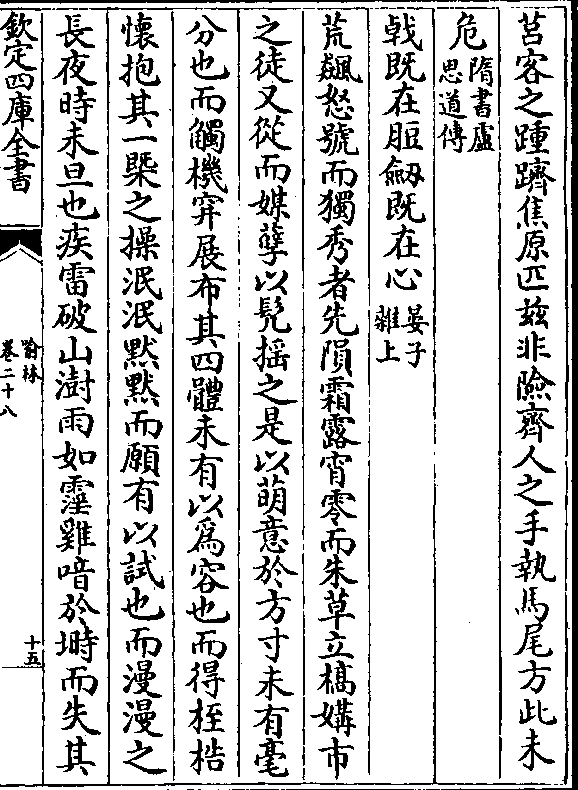 莒客之踵躋焦原匹兹非險齊人之手執馬尾方此未
危隋書盧思道傳
戟既在脰劔既在心晏子雜上
荒飆怒號而獨秀者先隕霜露宵零而朱草立槁媾市
之徒又從而媒孽以髡搖之是以萌意於方寸未有毫
分也而觸機穽展布其四體未有以為容也而得桎梏
懷抱其一槩之操泯泯默默而願有以試也而漫漫之
長夜時未旦也疾雷破山澍雨如𩆍雞喑於塒而失其
欽定四庫全書
喻林
卷二十八
十五